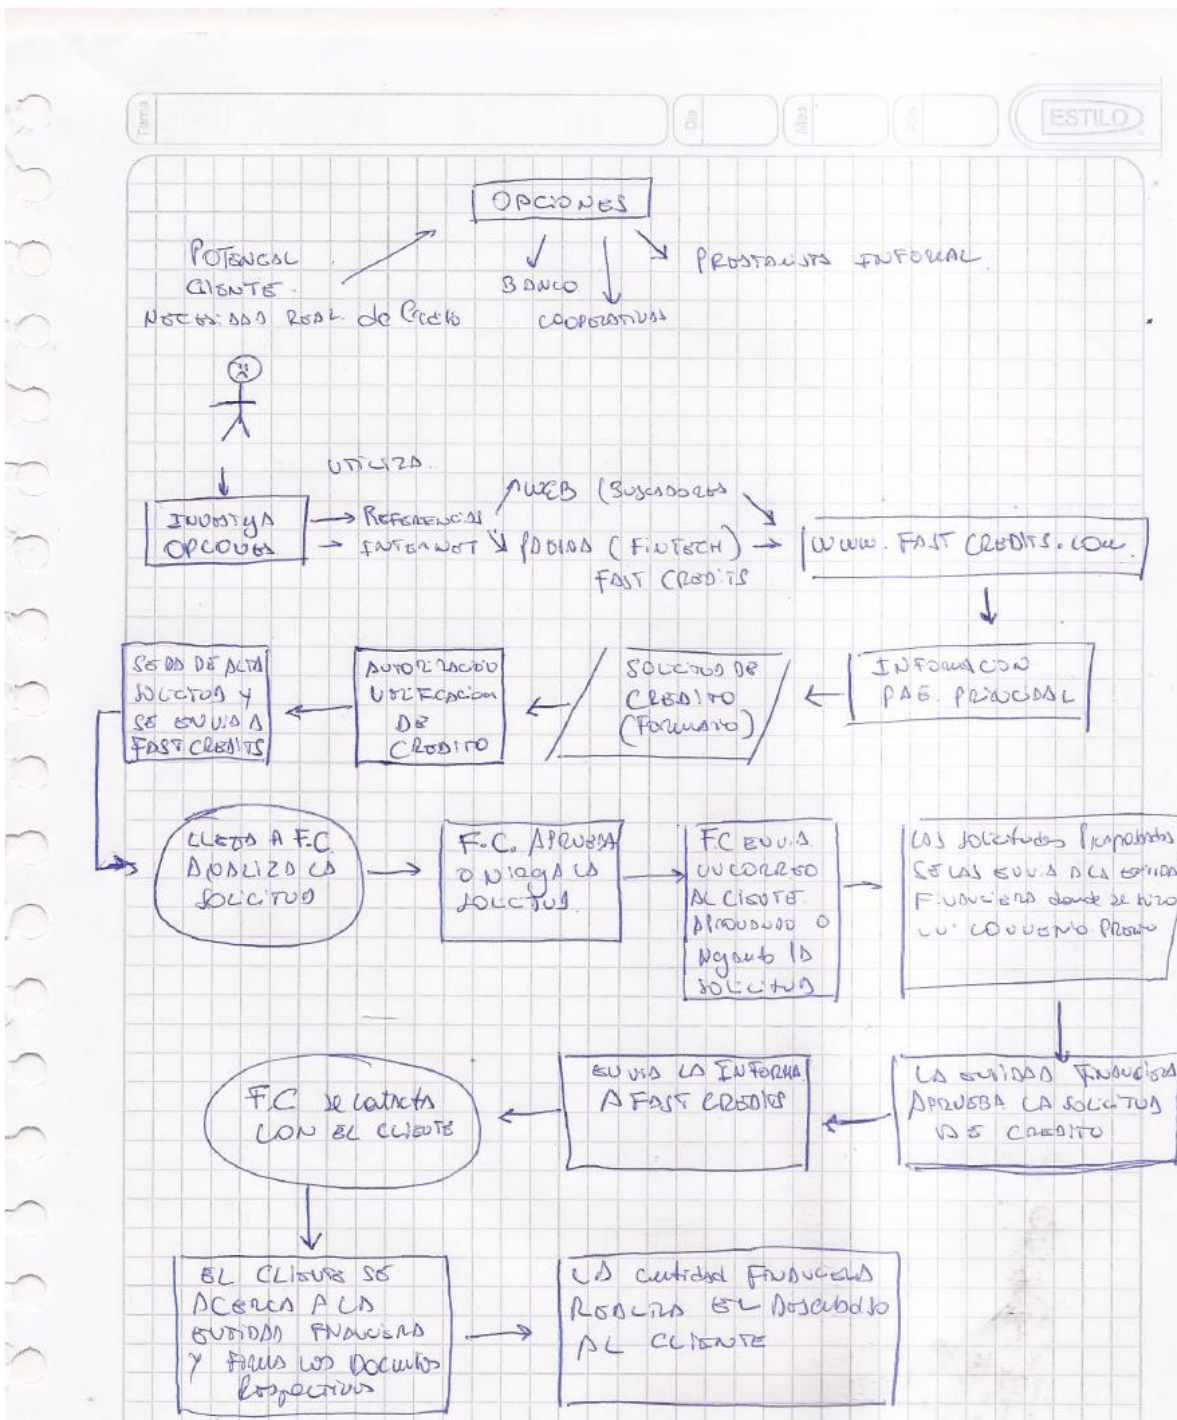 Tema
Dia
Mes
Año
ESTILO
OPCIONES
POTENCIAL
CLIENTE.
NECESIDAD REAL de Crédito
BANCO
COOPERATIVAS
PRESTAMISTA INFORMAL
UTILIZA
INVESTIGA
OPCIONES
REFERENCIAS
INTERNET
WEB (BUSCADORES
PAGINA (FINTECH)
FAST CREDITS
WWW. FAST CREDITS.COM
INFORMACION
PAG. PRINCIPAL
SOLICITUD DE
CREDITO
(FORMULARIO)
AUTORIZACION
VERIFICACION
DE
CREDITO
SE DA DE ALTA
SOLICITUD Y
SE ENVIA A
FAST CREDITS
LLEGA A F.C.
ANALIZA LA
SOLICITUD
F.C. APRUEBA
O NIEGA LA
SOLICITUD
F.C ENVIA
UN CORREO
AL CLIENTE
APROBANDO O
NEGANDO LA
SOLICITUD
LAS SOLICITUDES Preaprobadas
SE LAS ENVIA A LA ENTIDAD
FINANCIERA donde se hizo
UN CONVENIO PREVIO
LA ENTIDAD FINANCIERA
APRUEBA LA SOLICITUD
DE CREDITO
ENVIA LA INFORMA
A FAST CREDITS
F.C se contacta
CON EL CLIENTE
EL CLIENTE SE
ACERCA A LA
ENTIDAD FINANCIERA
Y FIRMA LOS
Respectivos
LA entidad FINANCIERA
REALIZA EL Desembolso
AL CLIENTE